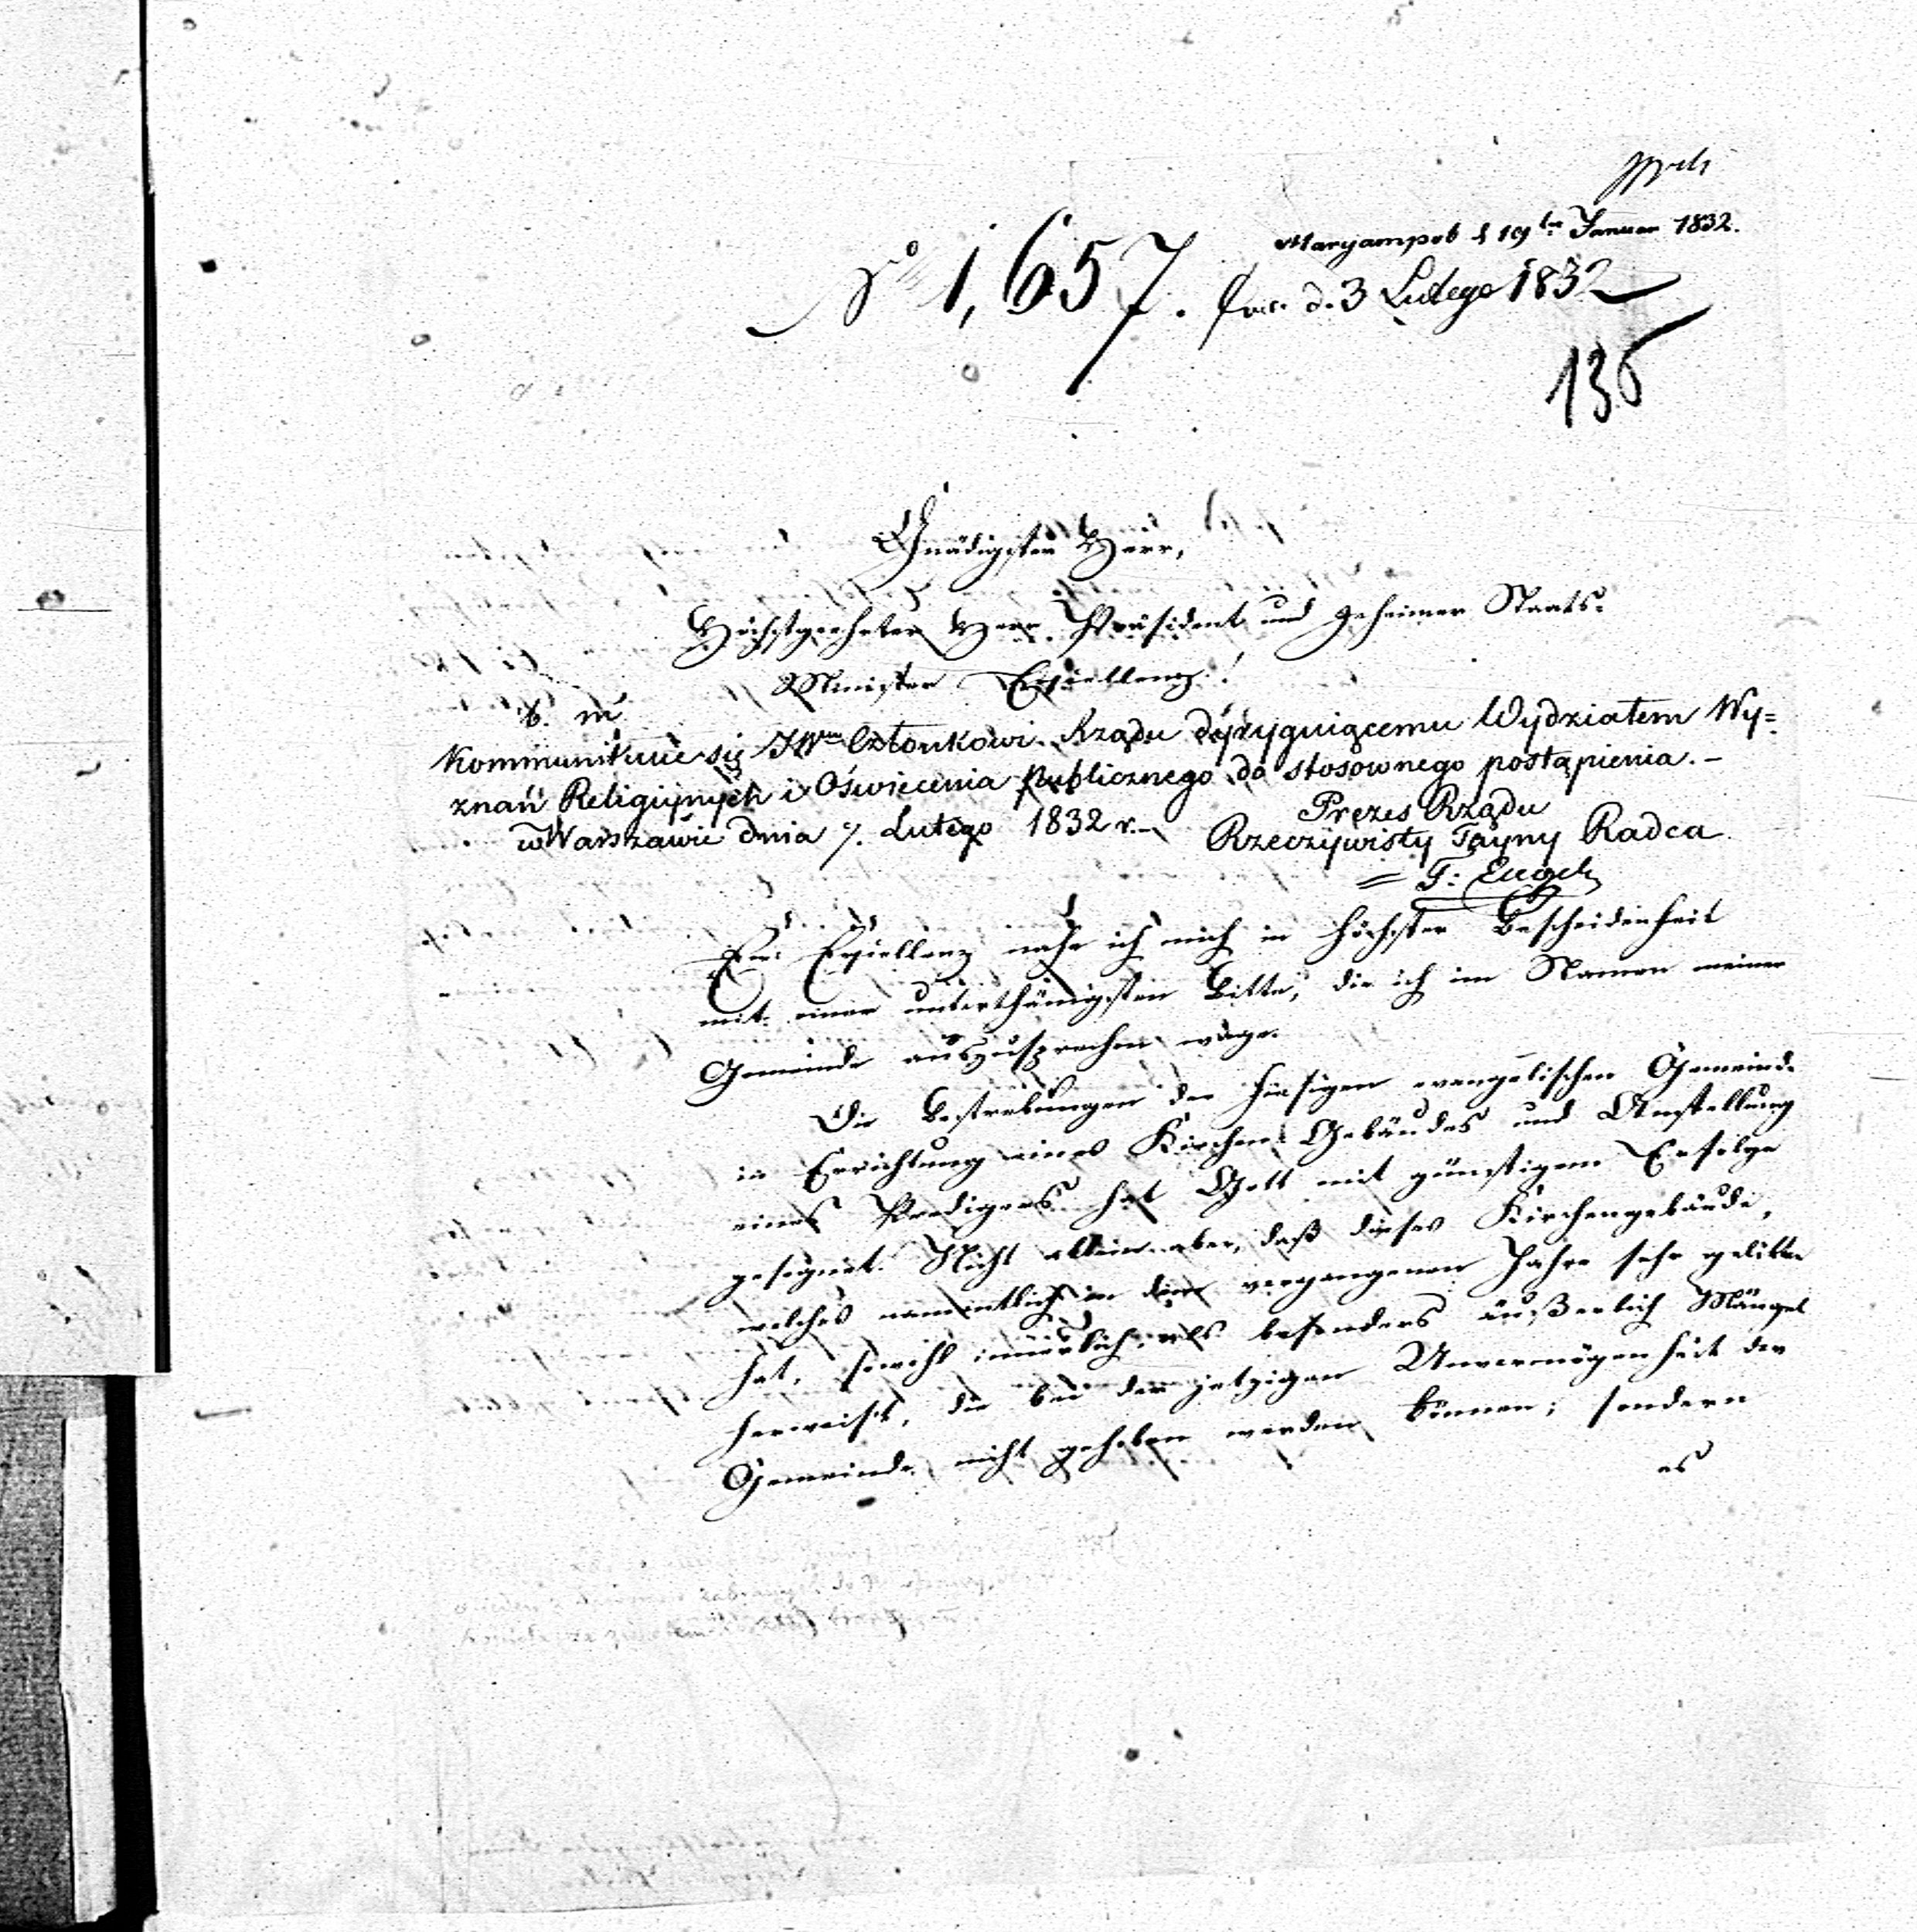 Maryampol d 19ten Januar 1832.
No 1,657. d. 3 Lutego 1832
136
Gnädigster Herr,
Höchstgeehrter Herr Präsident und geheimer Staats-
Minister Excellenz!
Kommunikuie się JWmu Członkowi Rządu dyryguiącemu Wydziałem Wy=
znań Religiynych i Oświecenia Publicznego do stosownego postąpienia. –
w Warszawie dnia 7. Lutego 1832 r. –
Prezes Rządu
Rzeczywisty Tayny Radca
F: Engel
Ew: Excellenz nahe ich mich in höchster Bescheidenheit
mit einer unterthänigsten Bitte, die ich im Namen meiner
Gemeinde auszusprechen wage.
Die Bestrebungen der hiesigen evangelischen Gemeinde
in Errichtung eines Kirchen-Gebäudes und Anstellung
eines Predigers hat Gott mit günstigem Erfolge
gesegnet. Nicht allein aber, daß dieses Kirchengebäude,
welches namentlich in dem vergangenen Jahre sehr gelitten
hat, sowohl innerlich, als besonders äußerlich Mängel
, die bei der jetzigen Unvermögenheit der
Gemeinde nicht gehoben werden können; sondern
es